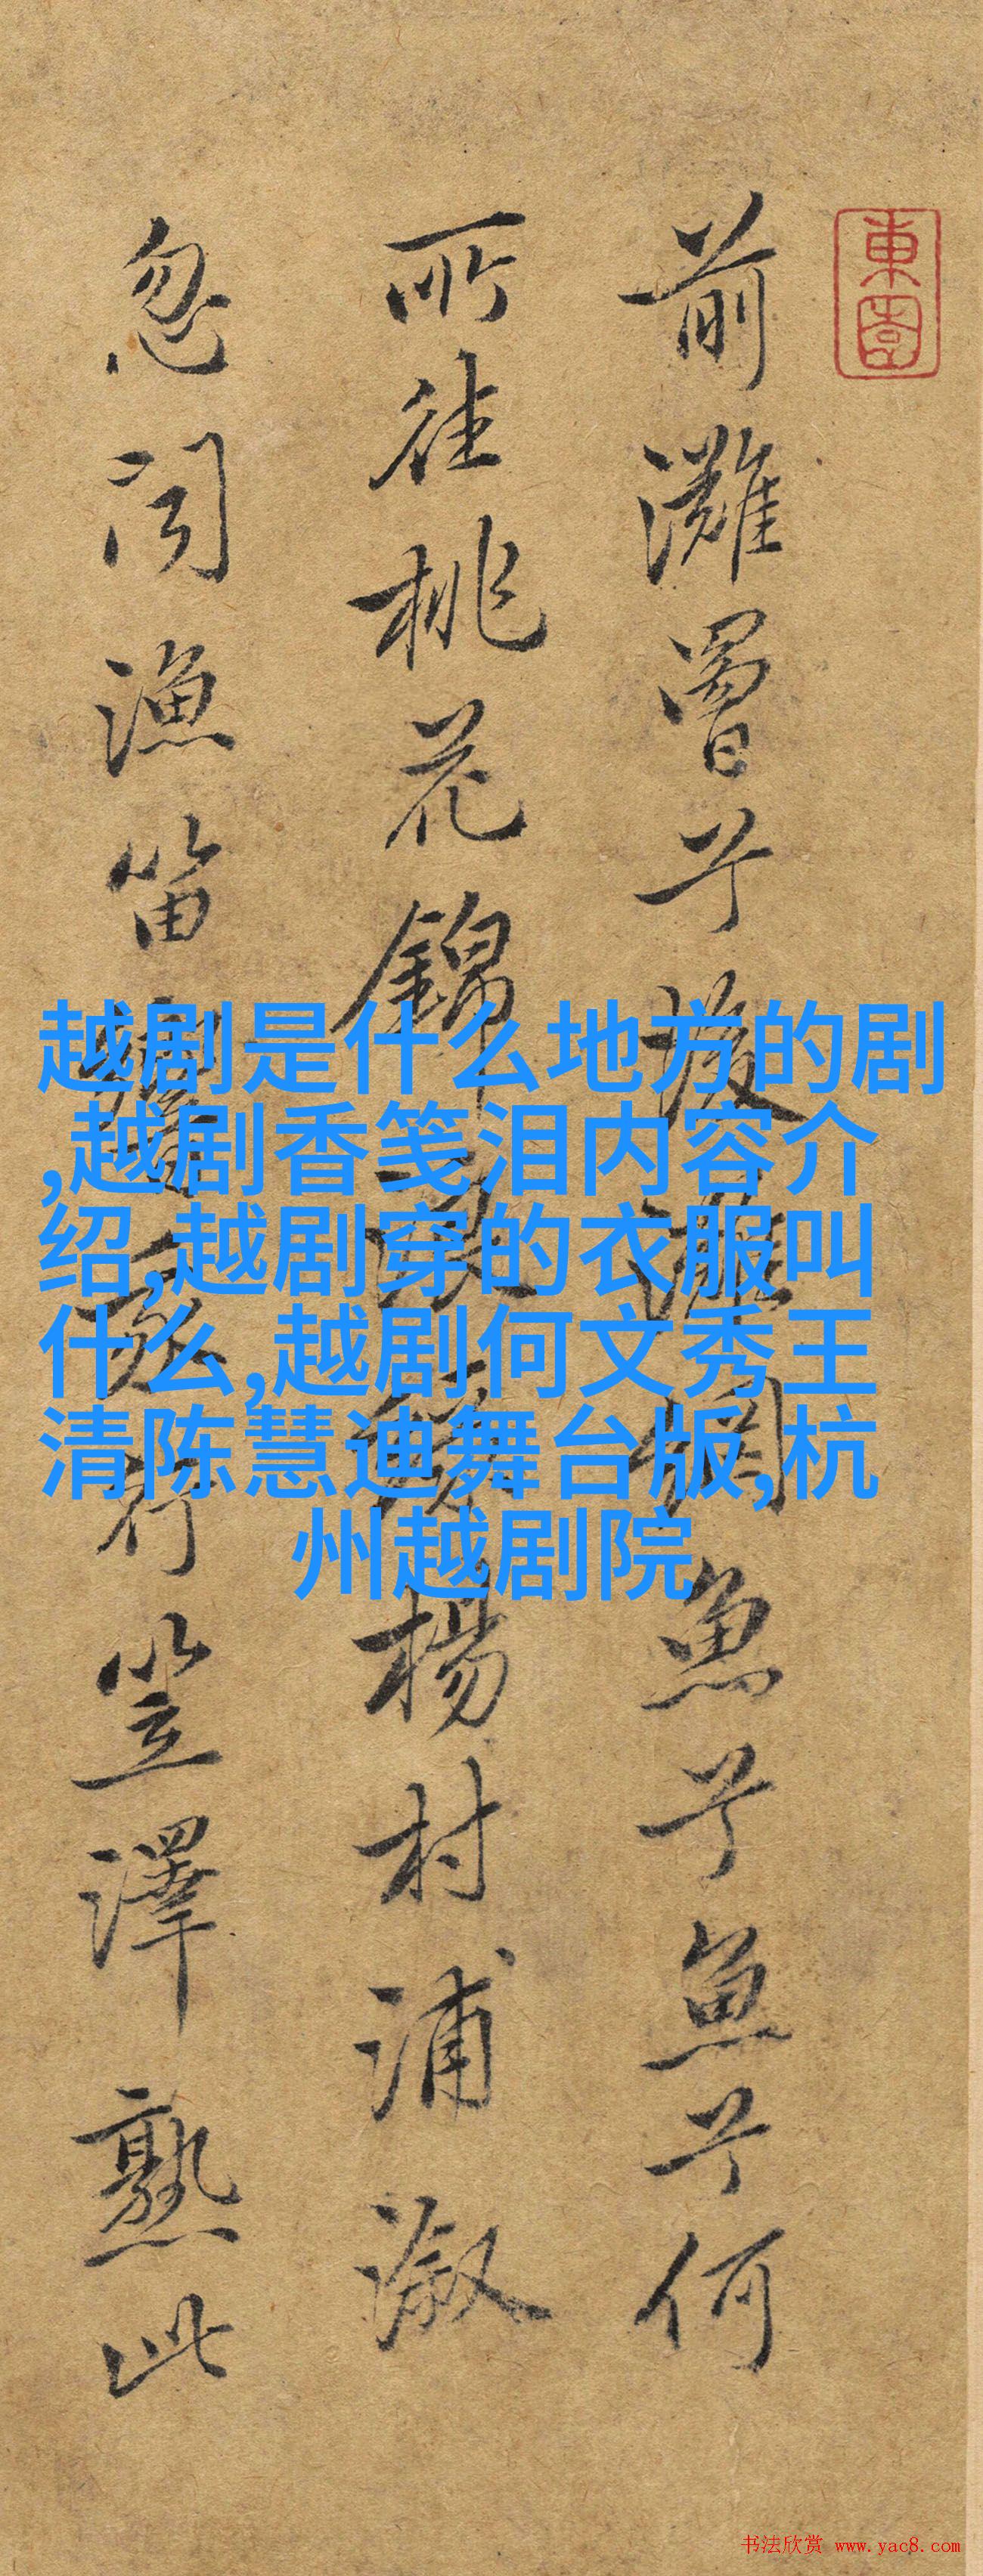 東
前灘罾兮後灘網魚兮魚兮何
所往桃花錦浪綠楊村浦溆
忽聞漁笛行笠澤熟此
越剧是什么地方的剧
,越剧香笺泪内容介
绍,越剧穿的衣服叫
什么,越剧何文秀王
清陈慧迪舞台版,杭
州越剧院
书法欣赏 www.yac8.com